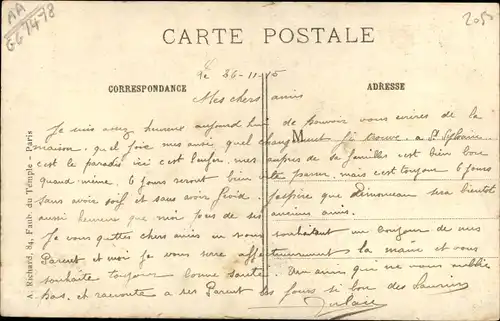 AA
GG7478
205
CARTE POSTALE
Le 26-11-15
CORRESPONDANCE
ADRESSE
Mes chers amis
Je suis assez heureux aujourd'hui de pouvoir vous écrires de la
maison, quel fois mes aussi quel changement Ji trouve. a St Sylvaire
c'est le paradis ici c'est l'enfer, mes aupres de sa familles est bien bon
quand même. 6 jours seront bien vite passer mais c'est toujour 6 jours
sans avoir soif et sans avoir froid. J'aspire que Dimonceau sera bientot
aussi heureux que moi près de ses anciens amis.
Je vous quittes chers amis en vous souhaitant un bonjour de mes
Parent et moi je vous serre affectueusement la main et vous
souhaite toujour bonne santé. Un ami qui ne vous oublie
pas, et raconte a ses Parent les jours si bon des
A. Richard, 84, Faub. du Temple - Paris